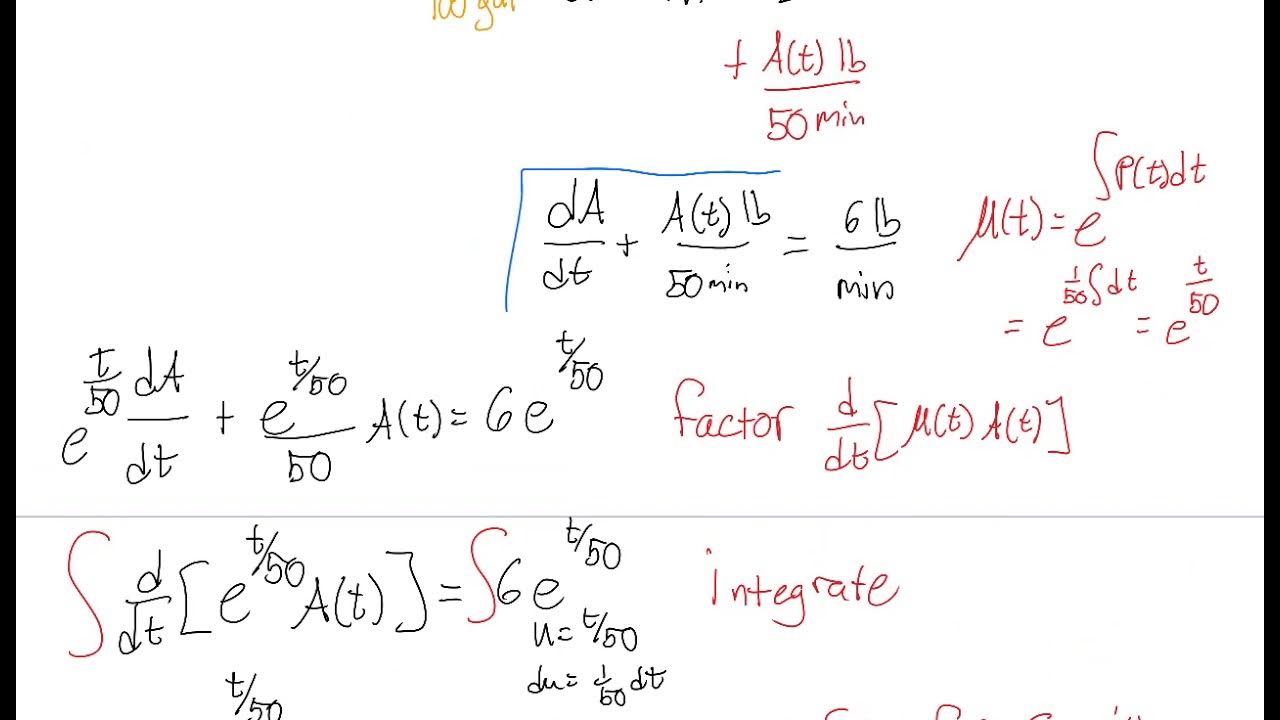 100 gal
+ A(t) lb / 50 min
dA/dt + A(t) lb / 50 min = 6 lb / min
μ(t) = e^{∫P(t)dt}
= e^{1/50 ∫dt} = e^{t/50}
e^{t/50} dA/dt + e^{t/50}/50 A(t) = 6e^{t/50}
factor d/dt [μ(t) A(t)]
∫ d/dt [e^{t/50} A(t)] = ∫6e^{t/50}
integrate
u = t/50
du = 1/50 dt
t/50